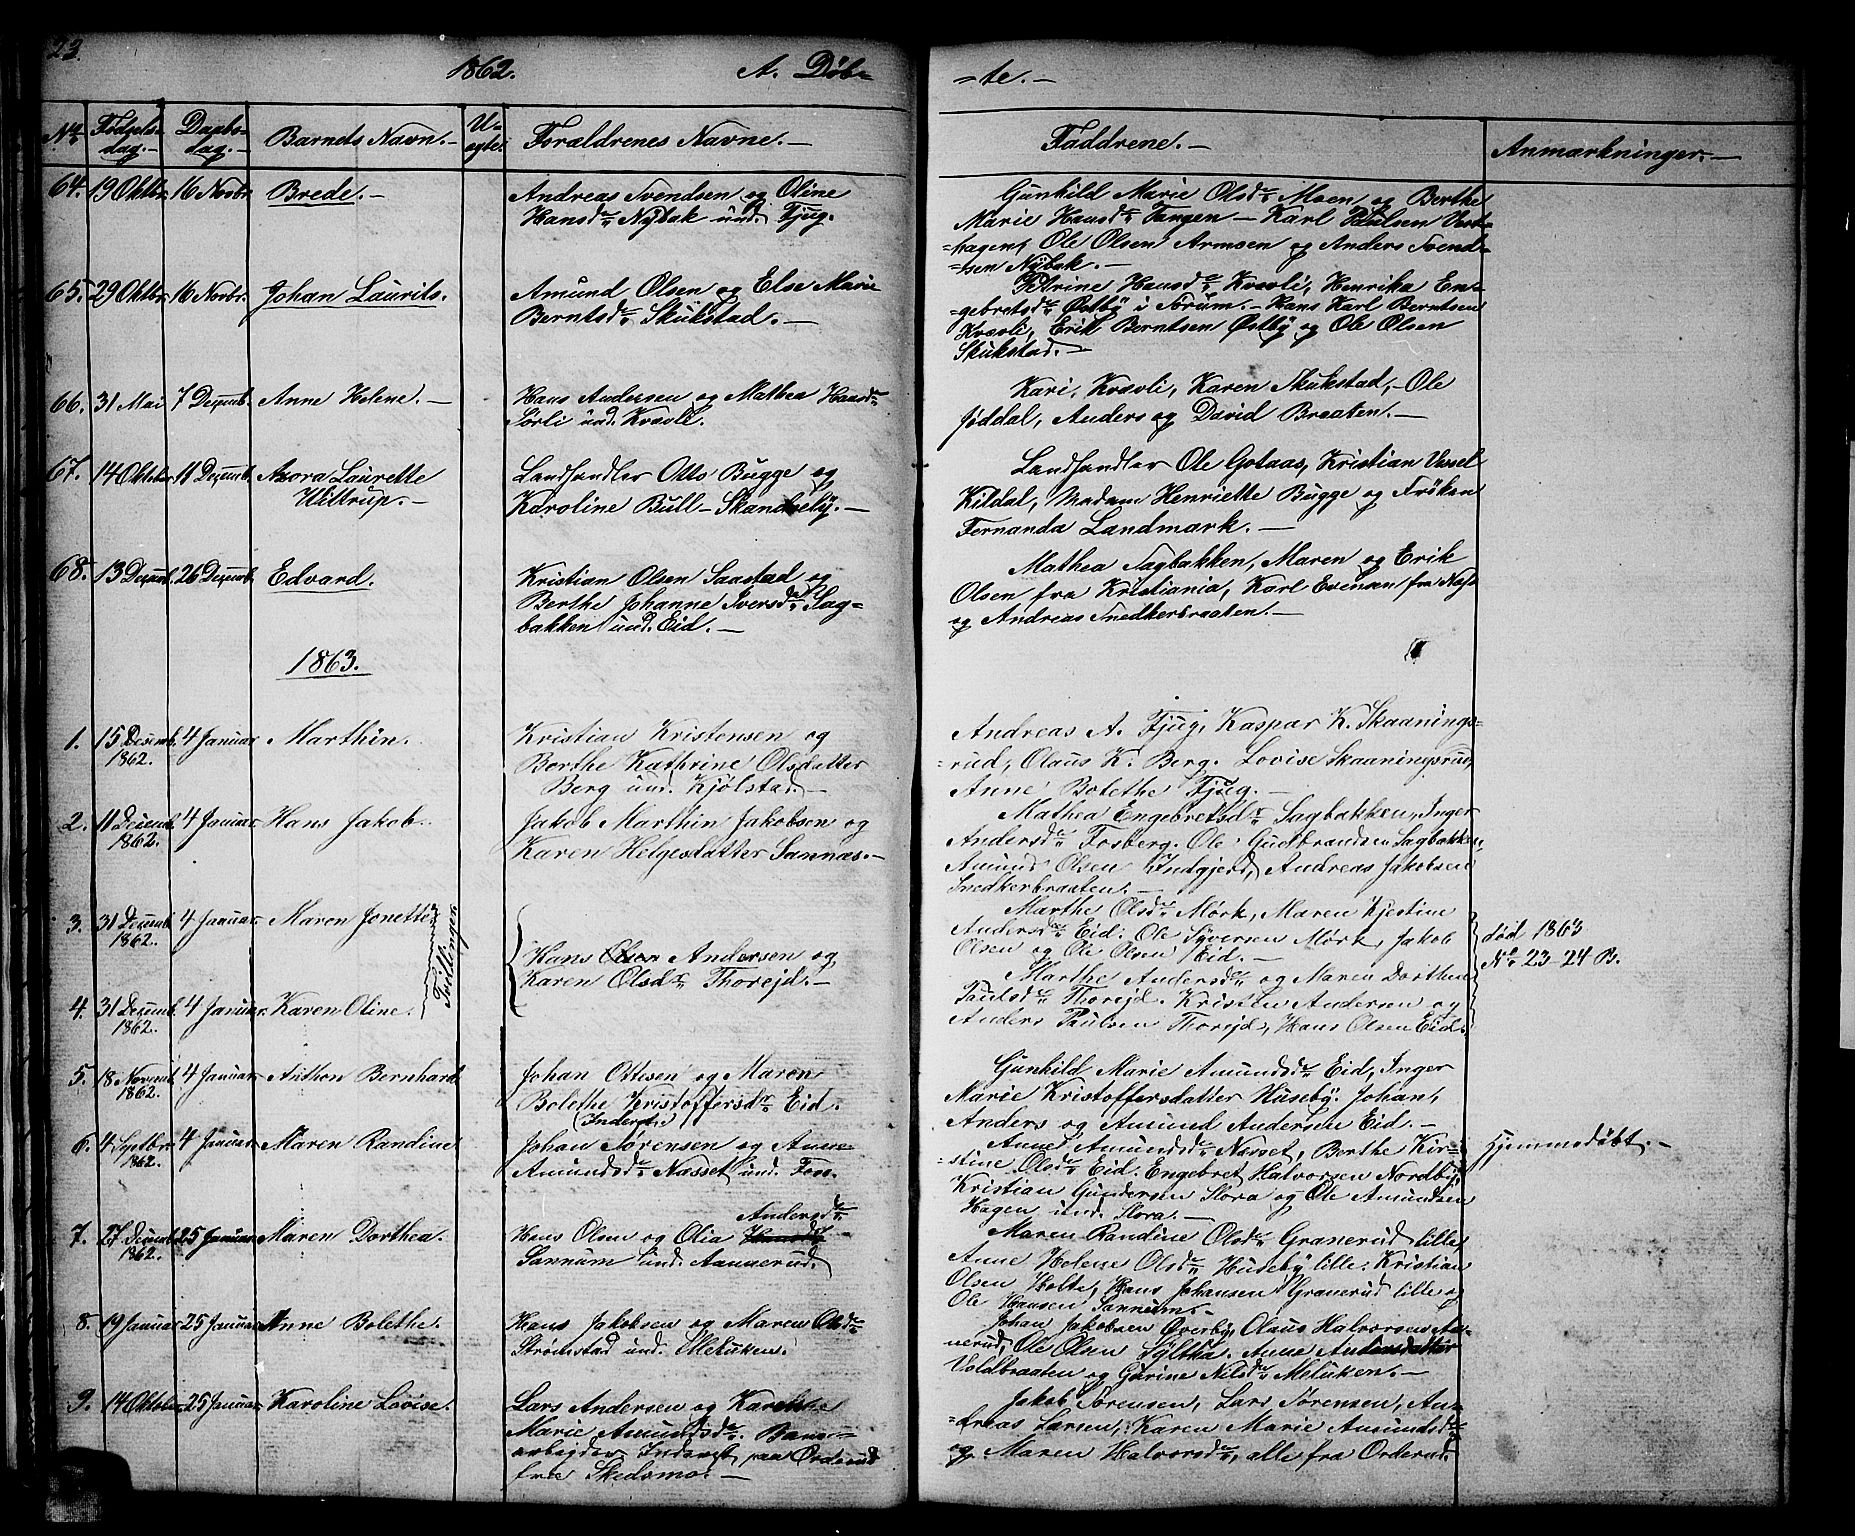 23.
1862. A. Døb=
=te.-
No. Fødsels- dag.- Daabs- dag.- Barnets Navn.- U- ægte. Forældrenes Navne.-
Faddrene.- Anmærkninger.-
64. 19 Oktbr. 16 Novbr. Brede.- Andreas Svendsen og Oline
Hansdr. Nybak und. Fjug.
Gunhild Marie Olsdr. Moen og Berthe
Marie Hansdr. Tangen - Karl Paulsen Vest-
=hagen, Ole Olsen Armoen og Anders Svend-
=sen Nybak.-
65. 29 Oktbr. 16 Novbr. Johan Laurits. Amund Olsen og Else Marie
Berntsdr. Skukstad.-
Petrine Hansdr. Kvævli, Henrika En=
=gebretsdr. Østby i Sørum.- Hans Karl Berntsen
Kvævli, Erik Berntsen Østby og Ole Olsen
Skukstad.-
66. 31 Mai 7 Desemb. Anne Helene.- Hans Andersen og Mathea Hansdr.
Sørli und. Kvævli.
Kari Kvævli, Karen Skukstad,- Ole
Jøddal, Anders og David Braaten.-
67. 14 Oktober 11 Desemb. Laurette
Wittrup.-
Landhandler Otto Bugge og
Karoline Bull - Skandseby.-
Landhandler Ole Gotaas, Kristian Vessel
Kildal, Madam Henriette Bugge og Frøken
Fernanda Landmark.-
68. 13 Desemb. 26 Desemb. Edvard. Kristian Olsen Saastad og
Berthe Johanne Iversdr. Sag=
bakken und. Eid.-
Mathea Sagbakken, Maren og Erik
Olsen fra Kristiania, Karl Evensen fra Næs
og Andreas Snedkerbraaten.-
1863.
1. 15 Desemb. 1862. 4 Januar Marthin. Kristian Kristensen og
Berthe Kathrine Olsdatter
Berg und. Kjølstad.-
Andreas A. Fjug, Kaspar K. Skaanings=
=rud, Olaus K. Berg. Lovise Skaaningsrud,
Anne Bolethe Fjug.-
2. 11 Desemb. 1862. 4 Januar Hans Jakob. Jakob Marthin Jakobsen og
Karen Helgesdatter Sannæs.-
Mathea Engebretsdr. Sagbakken, Inger
Andersdr. Fosberg. Ole Gudbrandsen Sagbakken,
Amund Olsen Indgjerd, Andreas Jakobsen
Snedkerbraaten.-
3. 31 Desemb. 1862. 4 Januar Maren Jonette Tvillinger
Hans Olsen Andersen og
Karen Olsdr. Thorejd.-
Marthe Olsdr. Mørk, Maren Kjestine
Andersdr. Eid. Ole Syversen Mørk, Jakob
Olsen og Ole Olsen Eid.-
død 1863
No. 23-24 B.
4. 31 Desemb. 1862. 4 Januar. Karen Oline.
Marthe Andersdr. og Maren Dorthea
Paulsdr. Thorejd. Kristen Andersen og
Anders Paulsen Thorejd, Hans Olsen Eid.
5. 18 Novemb. 1862. 4 Januar Anthon Bernhard Johan Ottesen og Maren
Bolethe Kristoffersdr. Eid.
(Inderst.)
Gunhild Marie Amundsdr. Eid, Inger
Marie Kristoffersdatter Huseby. Johan,
Anders og Amund Andersen Eid.-
6. 4 Septbr. 1862. 4 Januar Maren Randine Johan Sørensen og Anne
Amundsdr. Næsset und. Foss.
Anne Amundsdr. Næsset, Berthe Kir=
=stine Olsdr. Eid. Engebret Halvorsen Nordby,
Kristian Gundersen Slora og Ole Amundsen
Hagen und. Slora.-
Hjemmedøbt.-
7. 27 Desemb. 1862. 25 Januar Maren Dorthea. Andersdr.
Hans Olsen og Olia Hansdr.
Sannum und. Aannerud.
Maren Randine Olsdr. Granerud lille,
Anne Helene Olsdr. Huseby lille. Kristian
Olsen Holte, Hans Johansen Granerud lille og
Ole Hansen Sannum.-
8. 19 Januar 25 Januar Anne Bolethe. Hans Jakobsen og Maren Olsdr.
Strømstad und. Melluken.
Johan Jakobsen Øverby, Olaus Halvorsen An-
nerud, Ole Olsen Syltka. Anne Andersdatter
Voldbraaten og Gurine Nilsdr. Meluken.-
9. 14 Oktober 25 Januar Karoline Lovise. Lars Andersen og Karen
Marie Amundsdr. Bane=
=arbejder Inderst paa Orderud
fra Skedsmo.-
Jakob Sørensen, Lars Sørensen, An-
=dreas Larsen, Karen Marie Amundsdr.
og Maren Halvorsdr., alle fra Orderud.